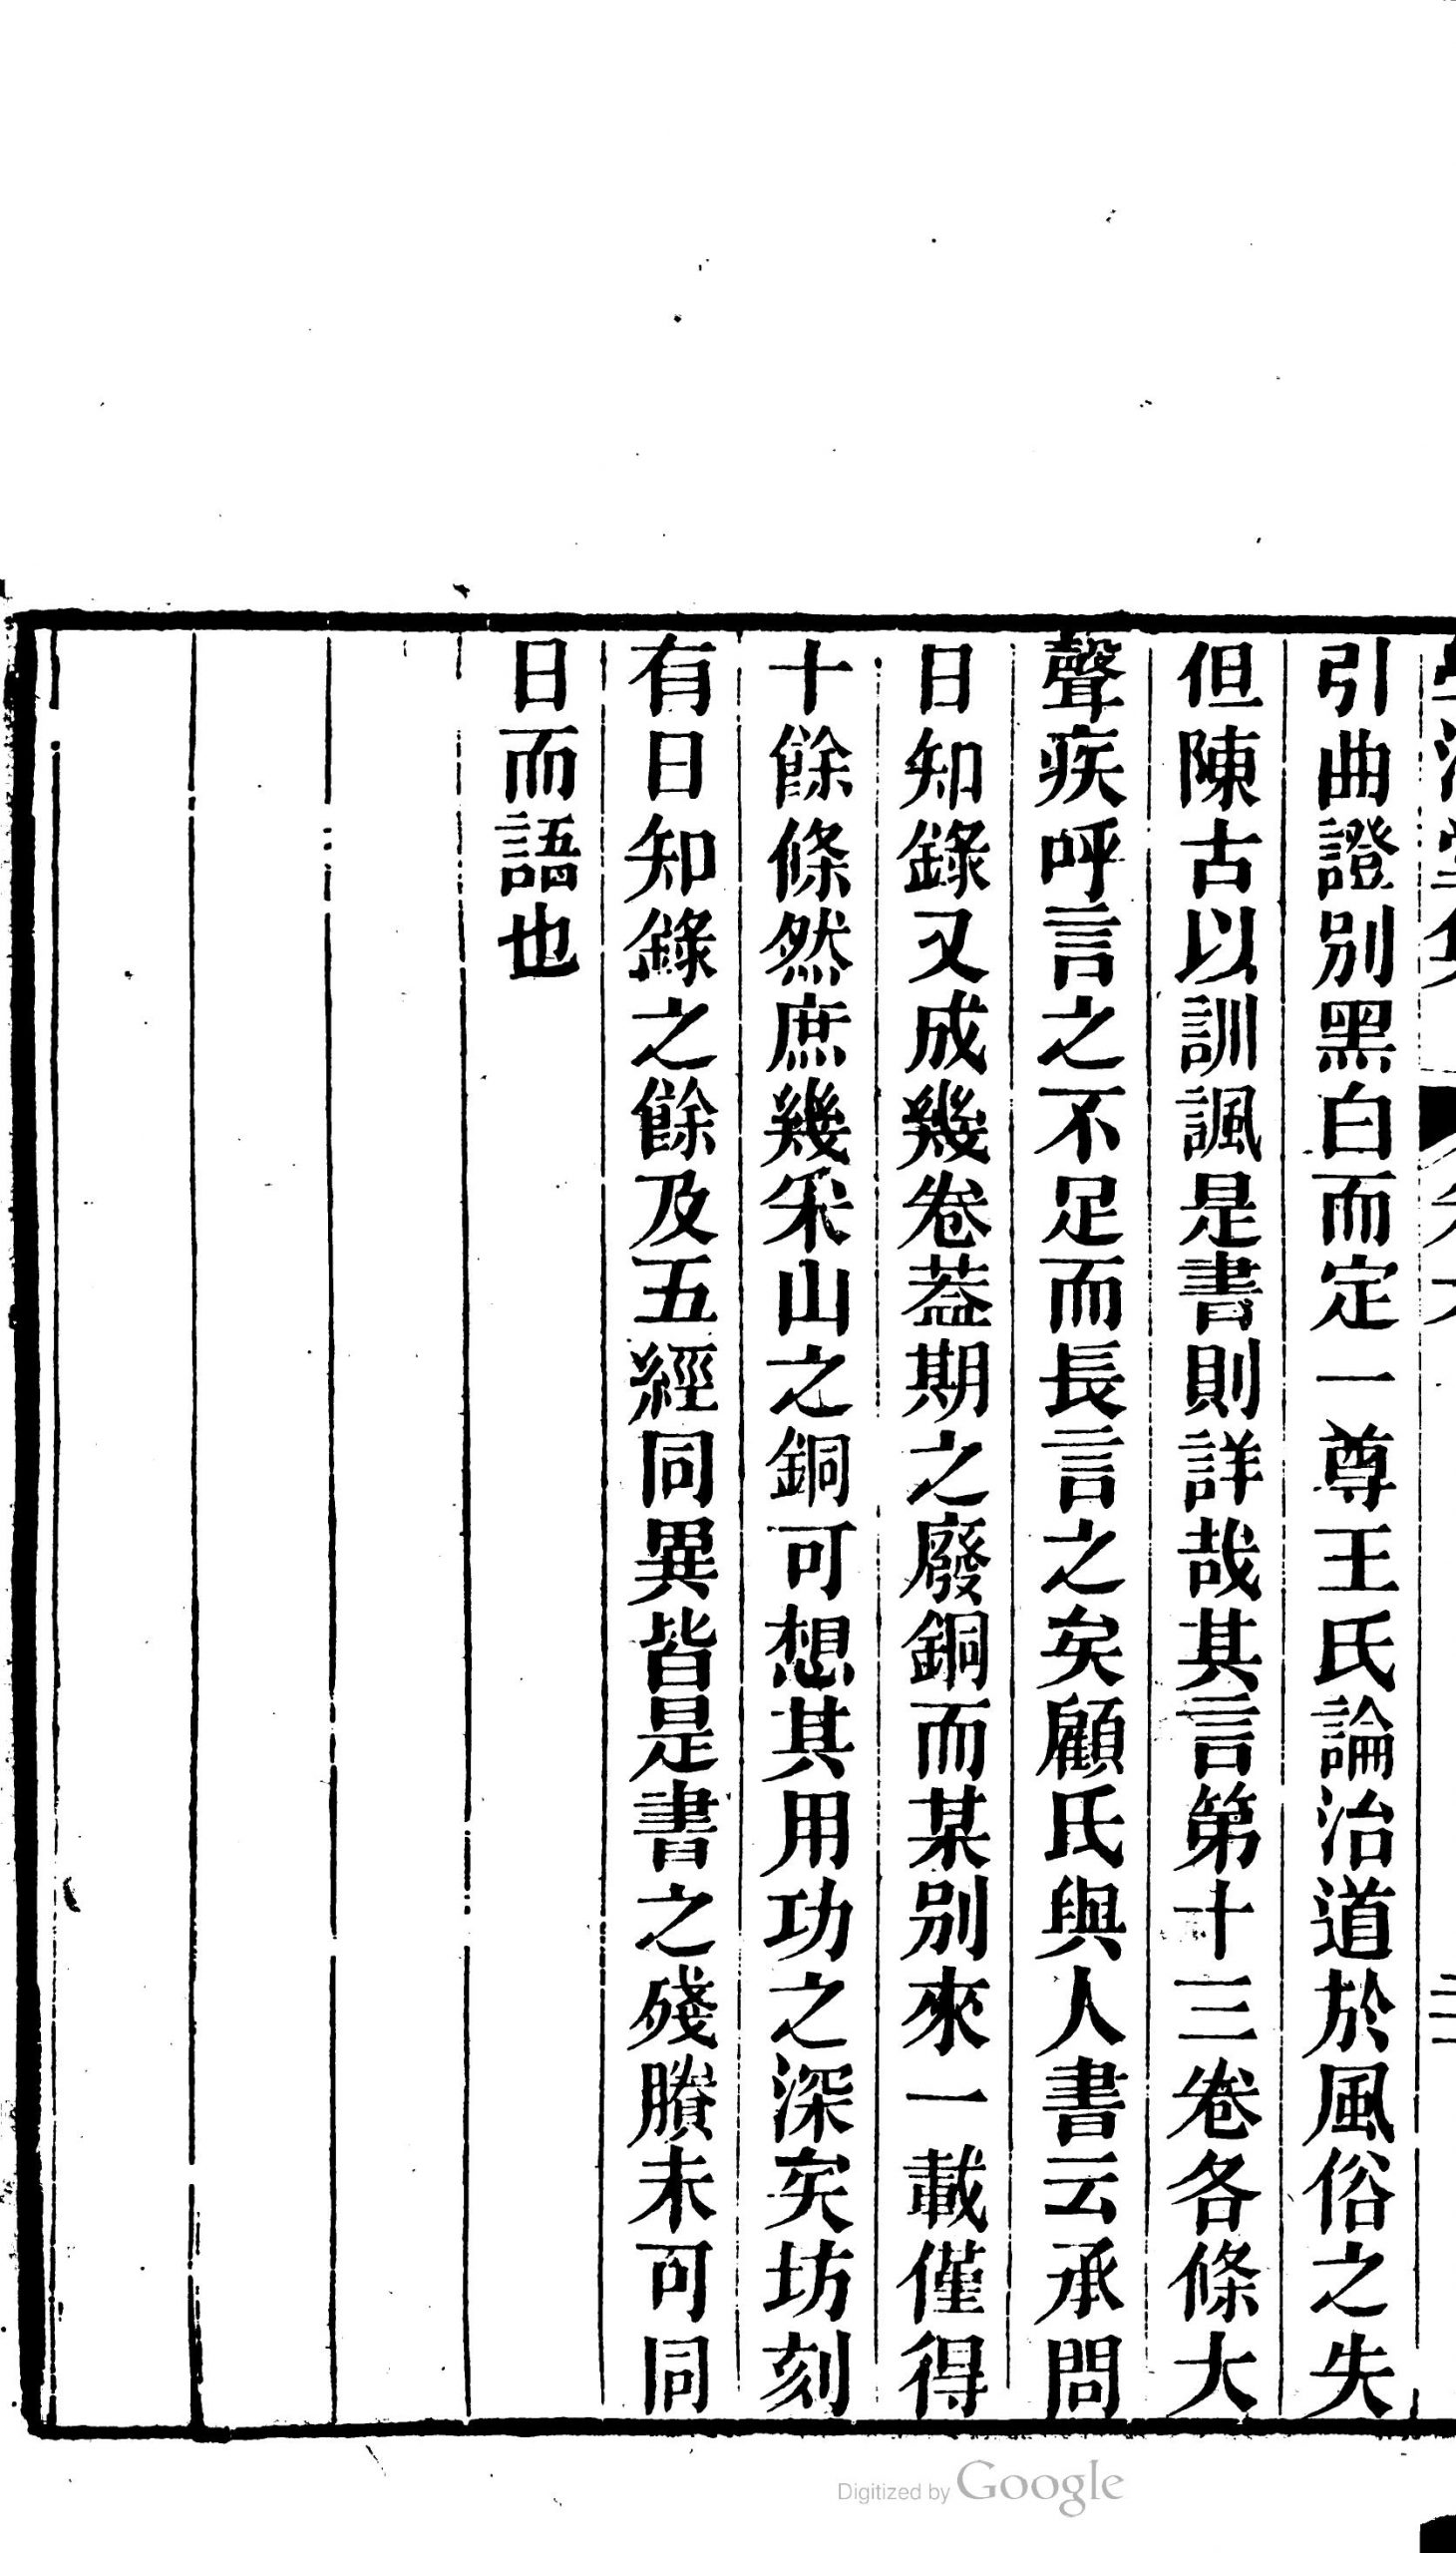 引曲證別黑白而定一尊王氏論治道於風俗之失
但陳古以訓諷是書則詳哉其言第十三卷各條大
聲疾呼言之不足而長言之矣顧氏與人書云承問
日知錄又成幾卷葢期之廢銅而某別來一載僅得
十餘條然庶幾采山之銅可想其用功之深矣坊刻
有日知錄之餘及五經同異皆是書之殘賸未可同
日而語也
Digitized by Google